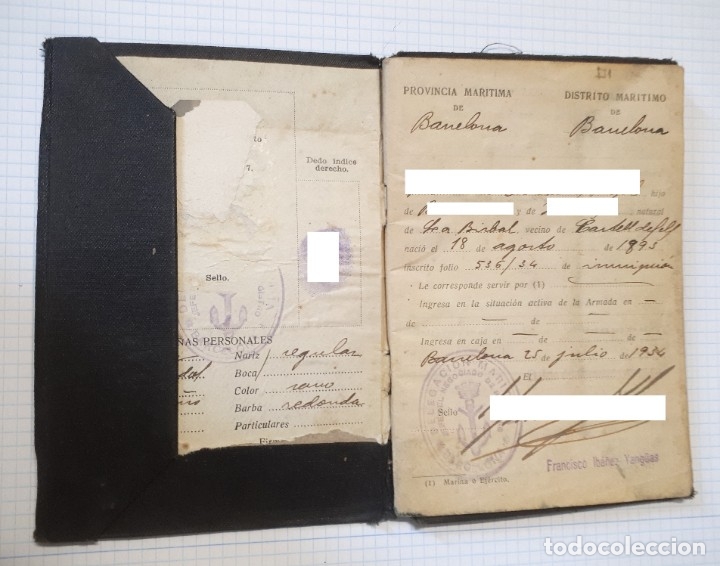 to
7.
Dedo índice
derecho.
Sello.
ÑAS PERSONALES
Nariz regular
Boca
Color sano
Barba redonda
Particulares
Firma
231
PROVINCIA MARITIMA
DISTRITO MARITIMO
DE
DE
Barcelona
Barcelona
hijo
de y de natural
de La Bisbal vecino de Castelldefels
nació el 18 de agosto de 1893
inscrito folio 536/34 de inscripción
Le corresponde servir por (1)
Ingresa en la situación activa de la Armada en
de de
Ingresa en caja en de de
Barcelona 25 de julio de 1934
El
Sello
Francisco Ibáñez Yanguas
(1) Marina o Ejército.
todocoleccion.net